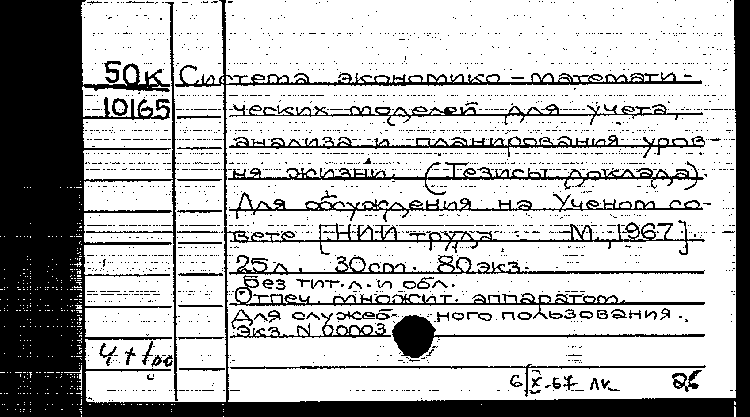 50К Система экономико-математи-
10165 ческих моделей для учета,
анализа и планирования уров-
ня жизни. (Тезисы доклада).
Для обсуждения на Ученом со-
вете [НИИ труда. М., 1967].
25л. 30см. 80экз.
Без тит.л. и обл.
Отпеч. множит. аппаратом.
Для служебного пользования.
Экз. N 00003
6/X-67 ЛК 26